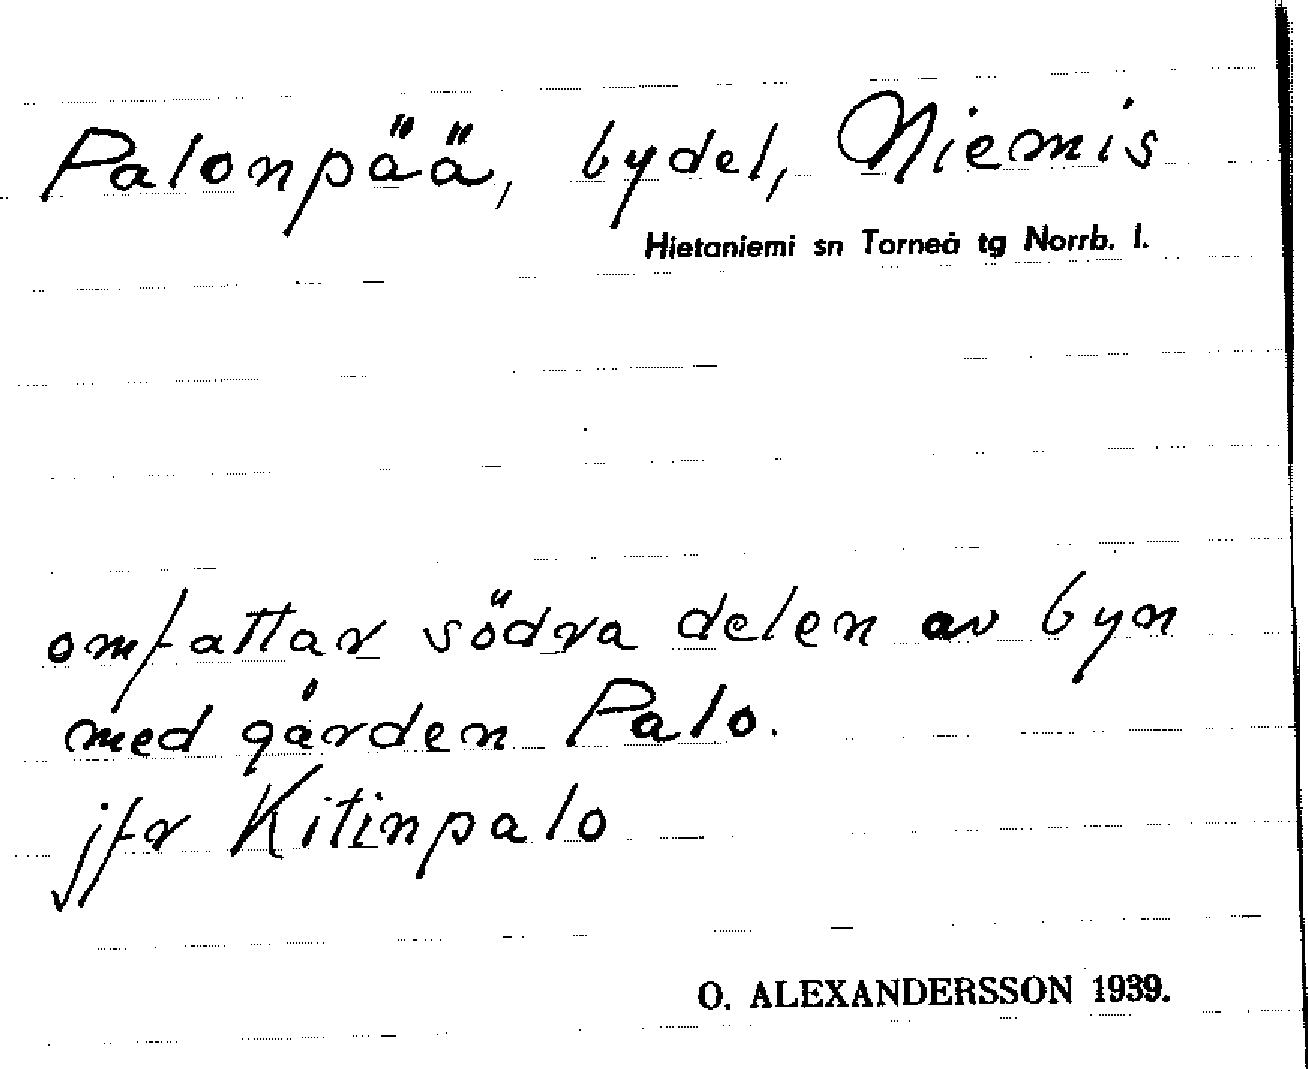 Palonpää, bydel, Niemis
Hietaniemi sn Torneå tg Norrb. l.
omfattar södra delen av byn
med gården Palo.
jfr Kitinpalo
O. ALEXANDERSSON 1939.